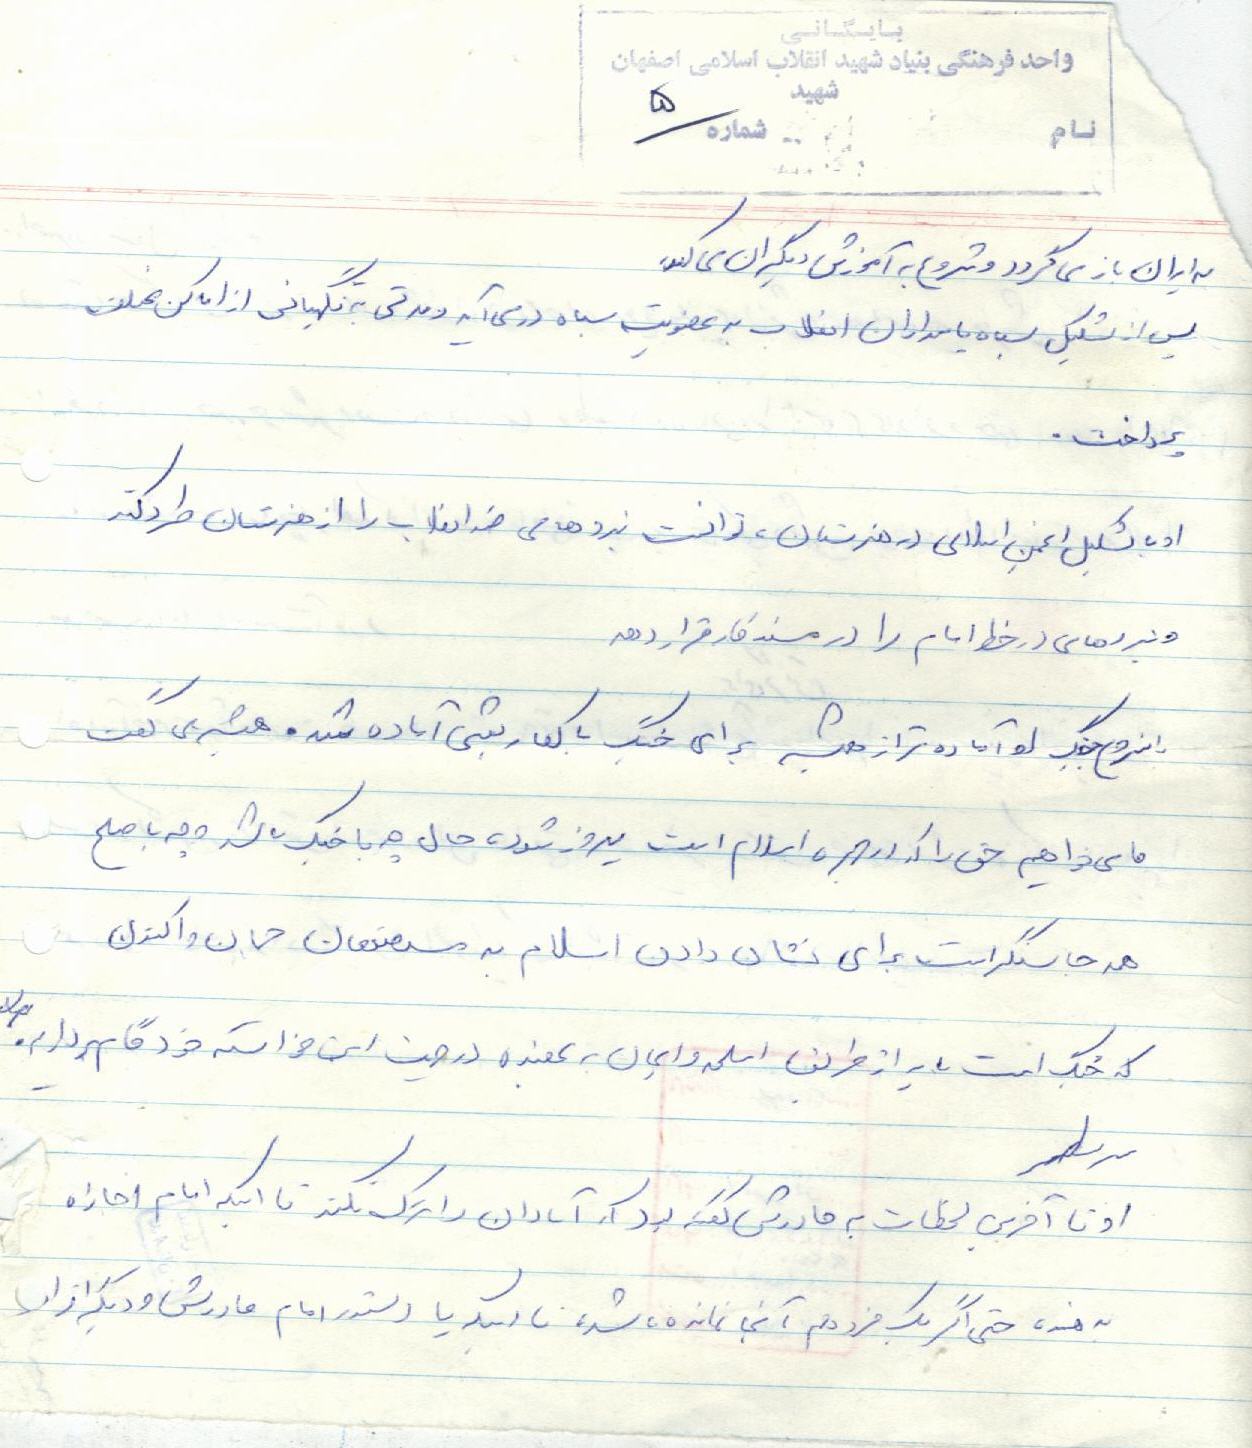 بایگانی
واحد فرهنگی بنیاد شهید انقلاب اسلامی اصفهان
شهید
نام شماره ۵
به ایران باز می گردد و شروع به آموزش دیگران می کند.
پس از تشکیل سپاه پاسداران انقلاب به عضویت سپاه درمی آید و مدتی به نگهبانی از اماکن مختلف
پرداخت.
او با تشکیل انجمن اسلامی در هنرستان، توانست نیروهای ضد انقلاب را از هنرستان طرد کند
و نیروهای در خط امام را در مسند کار قرار دهد
با شروع جنگ او آماده تر از همیشه برای جنگ با کفار بعثی آماده شد. همیشه می گفت
ما می خواهیم حق را که اسلام است پیروز شود، حال چه با جنگ باشد و چه با صلح
همه جا سنگر است برای نشان دادن اسلام به مستضعفان جهان و اکنون
که جنگ است باید از طریق اسلحه و ایمان به عقیده در جهت این خواسته خود گام برداریم.
او تا آخرین لحظات به مادرش گفته بود که آبادان را ترک نکند تا اینکه امام اجازه
بدهند، حتی اگر یک فرد هم آنجا نمانده باشد، تا اینکه با دستور امام مادرش و دیگر افراد